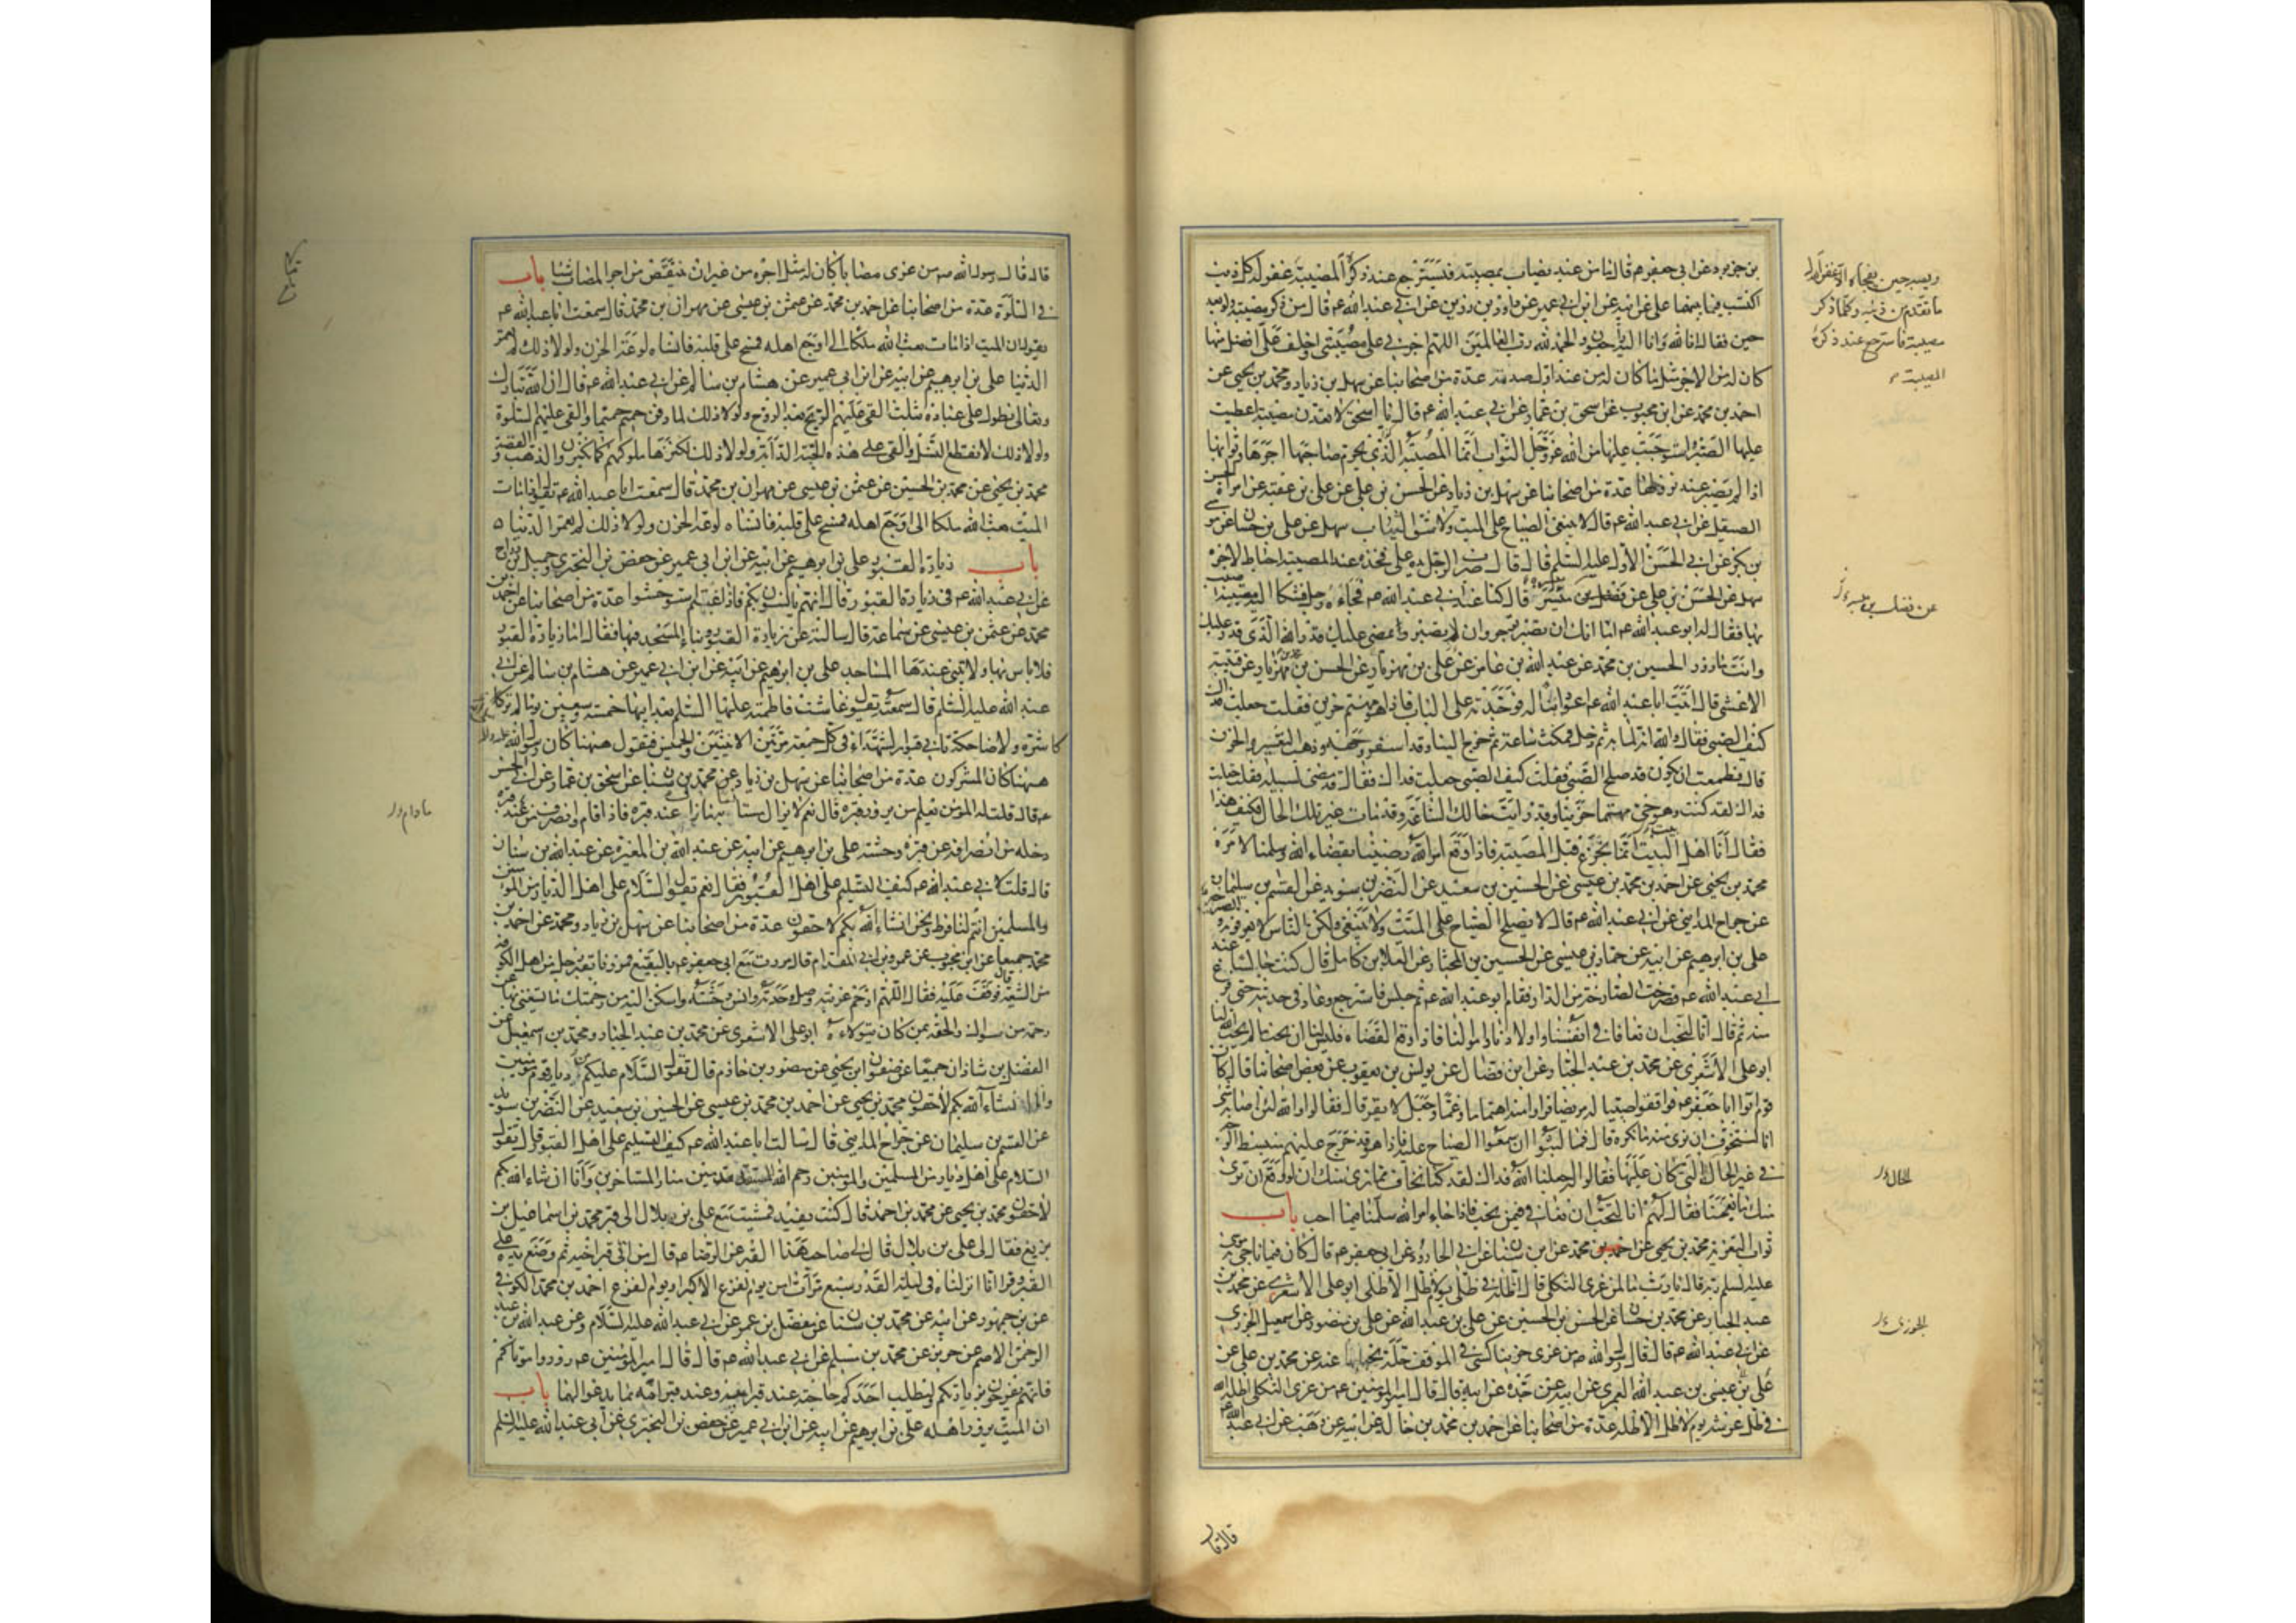 بن خربوذ عن ابي جعفر ع قال ما من عبد يصاب بمصيبة فيسترجع عند ذكره المصيبة غفر له كل ذنب
اكتسب فيما بينهما علي عن ابيه عن ابن ابي عمير عن داود بن رزين عن ابي عبد الله ع قال من ذكر مصيبته ولو بعد
حين فقال انا لله وانا اليه راجعون والحمد لله رب العالمين اللهم اجرني على مصيبتي واخلف علي افضل منها
كان له من الاجر مثل ما كان له من عند اول صدمة عدة من اصحابنا عن سهل بن زياد ومحمد بن يحيى عن
احمد بن محمد عن ابن محبوب عن اسحق بن عمار عن ابي عبد الله ع قال يا اسحق لا تعدن مصيبة اعطيت
عليها الصبر واستوجبت عليها من الله عز وجل الثواب انما المصيبة الذي يحرم صاحبها اجرها وثوابها
اذا لم يصبر عند نزولها عدة من اصحابنا عن سهل بن زياد عن الحسن بن علي عن علي بن عقبة عن امراة الحسن
الصيقل عن ابي عبد الله ع قال لا ينبغي الصياح على الميت ولا شق الثياب سهل عن علي بن حسان عن مو
بن بكر عن ابي الحسن الاول عليه السلم قال قال ضرب الرجل يده على فخذه عند المصيبة احباط لاجره
سهل عن الحسن بن علي عن فضيل بن ميسر قال كنا عند ابي عبد الله ع فجاءه رجل فشكا اليه مصيبة اصيب
بها فقال له ابو عبد الله ع اما انك ان تصبر توجر وان لا تصبر يمضي عليك قدر الله الذي قدر عليك
وانت مازور الحسين بن محمد عن عبد الله بن عامر عن علي بن مهزيار عن الحسن بن محمد بن مهزيار عن قتيبة
الاعشى قال اتيت ابا عبد الله ع اعود ابنا له فوجدته على الباب فاذا هو مهتم حزين فقلت جعلت فداك
كيف الصبي فقال والله انه لما به ثم دخل فمكث ساعة ثم خرج الينا وقد اسفر وجهه وذهب التغير والحزن
قال فطمعت ان يكون قد صلح الصبي فقلت كيف الصبي جعلت فداك فقال قد مضى لسبيله فقلت جعلت
فداك لقد كنت وهو حي مهتما حزينا وقد رايت حالك الساعة وقد مات غير تلك الحال فكيف هذا
فقال انا اهل البيت انما نجزع قبل المصيبة فاذا وقع امر الله رضينا بقضاء الله وسلمنا لامره
محمد بن يحيى عن احمد بن محمد بن عيسى عن الحسين بن سعيد عن النضر بن سويد عن القسم بن سليمان
عن جراح المدايني عن ابي عبد الله ع قال لا يصلح الصياح على الميت ولا ينبغي ولكن الناس لا يعرفونه
علي بن ابرهيم عن ابيه عن حماد بن عيسى عن الحسين بن المختار عن العلا بن كامل قال كنت جالسا عند
ابي عبد الله ع فصرخت الصارخة من الدار فقام ابو عبد الله ع ثم جلس فاسترجع وعاد في حديثه حتى فرغ
منه ثم قال انا لنحب ان نعافا في انفسنا واولادنا واموالنا فاذا وقع القضاء فليس لنا ان نحب ما لم يحب الله لنا
ابو علي الاشعري عن محمد بن عبد الجبار عن ابن فضال عن يونس بن يعقوب عن بعض اصحابنا قال كان
قوم اتوا ابا جعفر ع فوافقوا صبيا له مريضا فراوا منه اهتماما وغما وجعل لا يقر قال فقالوا والله لئن اصابه شئ
انا لنتخوف ان نرى منه ما نكره قال فما لبثوا ان سمعوا الصياح عليه فاذا هو قد خرج عليهم منبسط الوجه
في غير الحال التي كان عليها فقالوا له جعلنا الله فداك لقد كنا نخاف مما نرى منك ان لو وقع ان نرى
منك ما يغمنا فقال لهم انا لنحب ان نعافى فيمن نحب فاذا جاء امر الله سلمنا فيما احب باب
ثواب التعزية محمد بن يحيى عن احمد بن محمد عن ابن سنان عن ابي الجارود عن ابي جعفر ع قال كان فيما ناجى به موسى
عليه السلم ربه قال يا رب ما لمن عزى الثكلى قال اظله في ظلي يوم لا ظل الا ظلي ابو علي الاشعري عن محمد بن
عبد الجبار عن محمد بن حسان عن الحسن بن الحسين عن علي بن عبد الله عن علي بن منصور عن اسمعيل الجزري
عن ابي عبد الله ع قال قال رسول الله ص من عزى حزينا كسي في الموقف حلة يحبا بها عنه عن محمد بن علي عن
علي بن عيسى بن عبد الله العمري عن ابيه عن جده عن ابيه قال قال امير المؤمنين ع من عزى الثكلى اظله الله
في ظل عرشه يوم لا ظل الا ظله عدة من اصحابنا عن احمد بن محمد بن خالد عن ابيه عن وهب عن ابي عبد الله ع
ويصبر حين تفجاه الا غفر له
ما تقدم من ذنبه وكلما ذكر
مصيبة فاسترجع عند ذكره
المصيبة
عن فضيل بن ميسر
الحال
الجوزى
قال قا
قال قال رسول الله ص من عزى مصابا كان له مثل اجره من غير ان ينتقص من اجر المصاب شيئا باب
في السلوة عدة من اصحابنا عن احمد بن محمد عن عثمن بن عيسى عن مهران بن محمد قال سمعت ابا عبد الله ع
يقول ان الميت اذا مات بعث الله ملكا الى اوجع اهله فمسح على قلبه فانساه لوعة الحزن ولولا ذلك لم تعمر
الدنيا علي بن ابرهيم عن ابيه عن ابن ابي عمير عن هشام بن سالم عن ابي عبد الله ع قال ان الله تبارك
وتعالى تطول على عباده بثلث القى عليهم الريح بعد الروح ولولا ذلك لما دفن حميم حميما والقى عليهم السلوة
ولولا ذلك لانقطع النسل والقى على هذه الحبة الدابة ولولا ذلك لكنزها ملوكهم كما يكنزون الذهب والفضة
محمد بن يحيى عن محمد بن الحسين عن عثمن بن عيسى عن مهران بن محمد قال سمعت ابا عبد الله ع يقول اذا مات
الميت بعث الله ملكا الى اوجع اهله فمسح على قلبه فانساه لوعة الحزن ولولا ذلك لم تعمر الدنيا
باب زيارة القبور علي بن ابرهيم عن ابيه عن ابن ابي عمير عن حفص بن البختري وجميل بن دراج
عن ابي عبد الله ع في زيارة القبور قال انهم يانسون بكم فاذا غبتم استوحشوا عدة من اصحابنا عن احمد بن
محمد عن عثمن بن عيسى عن سماعة قال سالته عن زيارة القبور وبناء المسجد فيها فقال اما زيارة القبور
فلا باس بها ولا تبنى عندها المساجد علي بن ابرهيم عن ابيه عن ابن ابي عمير عن هشام بن سالم عن ابي
عبد الله عليه السلم قال سمعته يقول عاشت فاطمة عليها السلم بعد ابيها خمسة وسبعين يوما لم تر
كاشرة ولا ضاحكة تاتي قبور الشهداء في كل جمعة مرتين الاثنين والخميس فتقول ههنا كان رسول الله
ههنا كان المشركون عدة من اصحابنا عن سهل بن زياد عن محمد بن سنان عن اسحق بن عمار عن ابي الحسن
ع قال قلت له المؤمن يعلم من يزور قبره قال نعم لا يزال مستانسا به ما زال عند قبره فاذا قام وانصرف من عند قبره
دخله من انصرافه عن قبره وحشة علي بن ابرهيم عن ابيه عن عبد الله بن المغيرة عن عبد الله بن سنان
قال قلت لابي عبد الله ع كيف التسليم على اهل القبور فقال نعم تقول السلام على اهل الديار من المؤمنين
والمسلمين انتم لنا فرط ونحن انشاء الله بكم لاحقون عدة من اصحابنا عن سهل بن زياد ومحمد عن احمد بن
محمد جميعا عن ابن محبوب عن عمرو بن ابي المقدام قال مررت مع ابي جعفر ع بالبقيع فمررنا بقبر رجل من اهل الكوفة
من الشيعة فوقف عليه فقال اللهم ارحم غربته وصل وحدته وانس وحشته واسكن اليه من رحمتك ما يستغني بها عن
رحمة من سواك والحقه بمن كان يتولاه ابو علي الاشعري عن محمد بن عبد الجبار ومحمد بن اسمعيل عن
الفضل بن شاذان جميعا عن صفوان بن يحيى عن منصور بن حازم قال تقول السلام عليكم من ديار قوم مؤمنين
وانا انشاء الله بكم لاحقون محمد بن يحيى عن احمد بن محمد بن عيسى عن الحسين بن سعيد عن النضر بن سويد
عن القسم بن سليمان عن جراح المدايني قال سالت ابا عبد الله ع كيف التسليم على اهل القبور قال تقول
السلام على اهل الديار من المسلمين والمومنين رحم الله المستقدمين منا والمستاخرين وانا ان شاء الله بكم
لاحقون محمد بن يحيى عن محمد بن احمد قال كنت بفيد فمشيت مع علي بن بلال الى قبر محمد بن اسماعيل بن
بزيع فقال لي علي بن بلال قال لي صاحب هذا القبر عن الرضا ع قال من اتى قبر اخيه ثم وضع يده على
القبر وقرا انا انزلناه في ليلة القدر سبع مرات امن يوم الفزع الاكبر او يوم الفزع احمد بن محمد الكوفي
عن بن جمهور عن ابيه عن محمد بن سنان عن مفضل بن عمر عن ابي عبد الله عليه السلام وعن عبد الله بن عبد
الرحمن الاصم عن حريز عن محمد بن مسلم عن ابي عبد الله ع قال قال امير المؤمنين ع زوروا موتاكم
فانهم يفرحون بزيارتكم وليطلب احدكم حاجته عند قبر ابيه وعند قبر امه بما يدعو لهما باب
ان الميت يزور اهله علي بن ابرهيم عن ابيه عن ابن ابي عمير عن حفص بن البختري عن ابي عبد الله عليه السلم
مادام